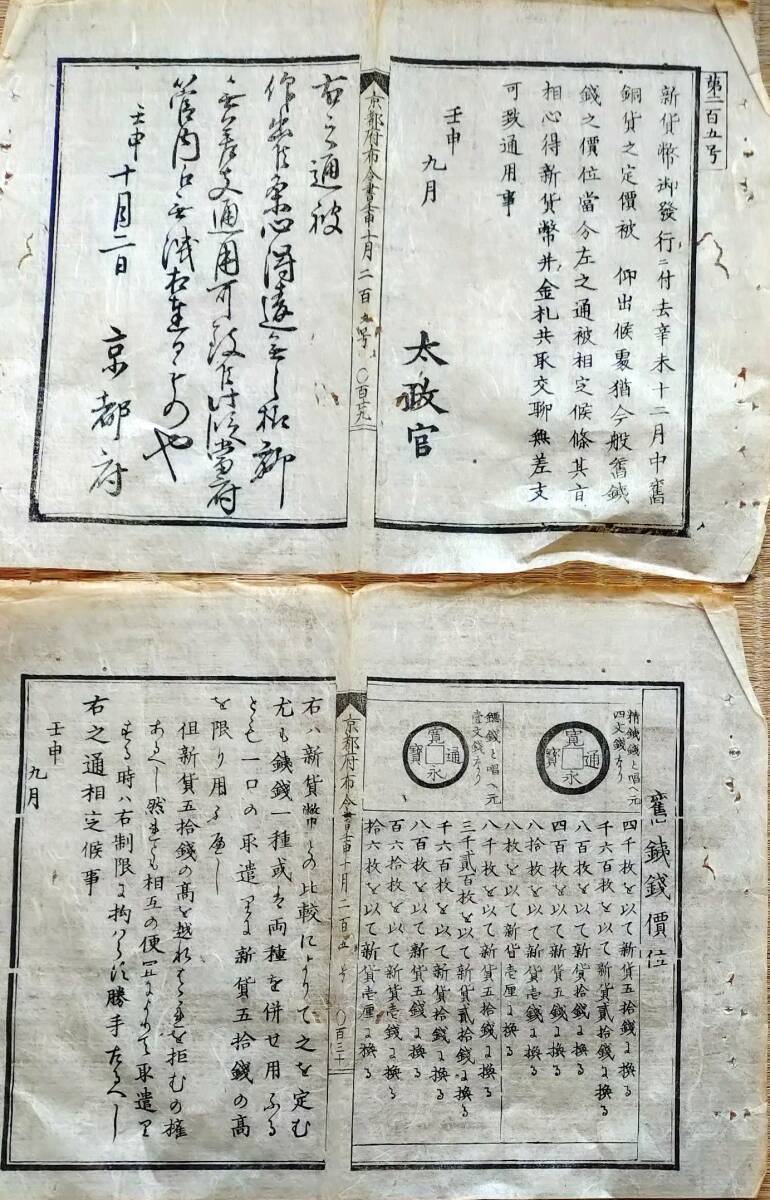 第二百五号
新貨幣御發行ニ付去辛未十二月中舊
銅貨之定價被 仰出候處猶今般舊鐵
錢之價位當分左之通被相定候條其旨
相心得新貨幣并金札共取交聊無差支
可致通用事
壬申 九月
太政官
京都府布令書壬申十月二百五号 〇百廿九
右之通被
仰出候条心得違無之様聊
無差支通用可致候此段當府
管内江無洩相達るもの也
壬申十月二日
京都府
舊鐵錢價位
精鐵錢と唱へ元
四文錢なり
寛永通寳
四千枚を以て新貨五拾錢に換る
千六百枚を以て新貨貳拾錢に換る
八百枚を以て新貨拾錢に換る
四百枚を以て新貨五錢に換る
八拾枚を以て新貨壱錢に換る
八枚を以て新貨壱厘に換る
鐚錢と唱へ元
壹文錢なり
寛永通寳
八千枚を以て新貨五拾錢に換る
三千貳百枚を以て新貨貳拾錢に換る
千六百枚を以て新貨拾錢に換る
八百枚を以て新貨五錢に換る
百六拾枚を以て新貨壱錢に換る
拾六枚を以て新貨壱厘に換る
京都府布令書壬申十月二百五号 〇百三十
右ハ新貨幣との比較によりて之を定む
尤も鐵錢一種或は両種を併せ用ふる
とも一口の取遣りに新貨五拾錢の高
を限り用ふ遍し
但新貨五拾錢の高を越れハ之を拒むの権
あるへし然れとも相互の便宜によりて取遣り
する時ハ右制限に拘ハらす勝手たるへし
右之通相定候事
壬申 九月